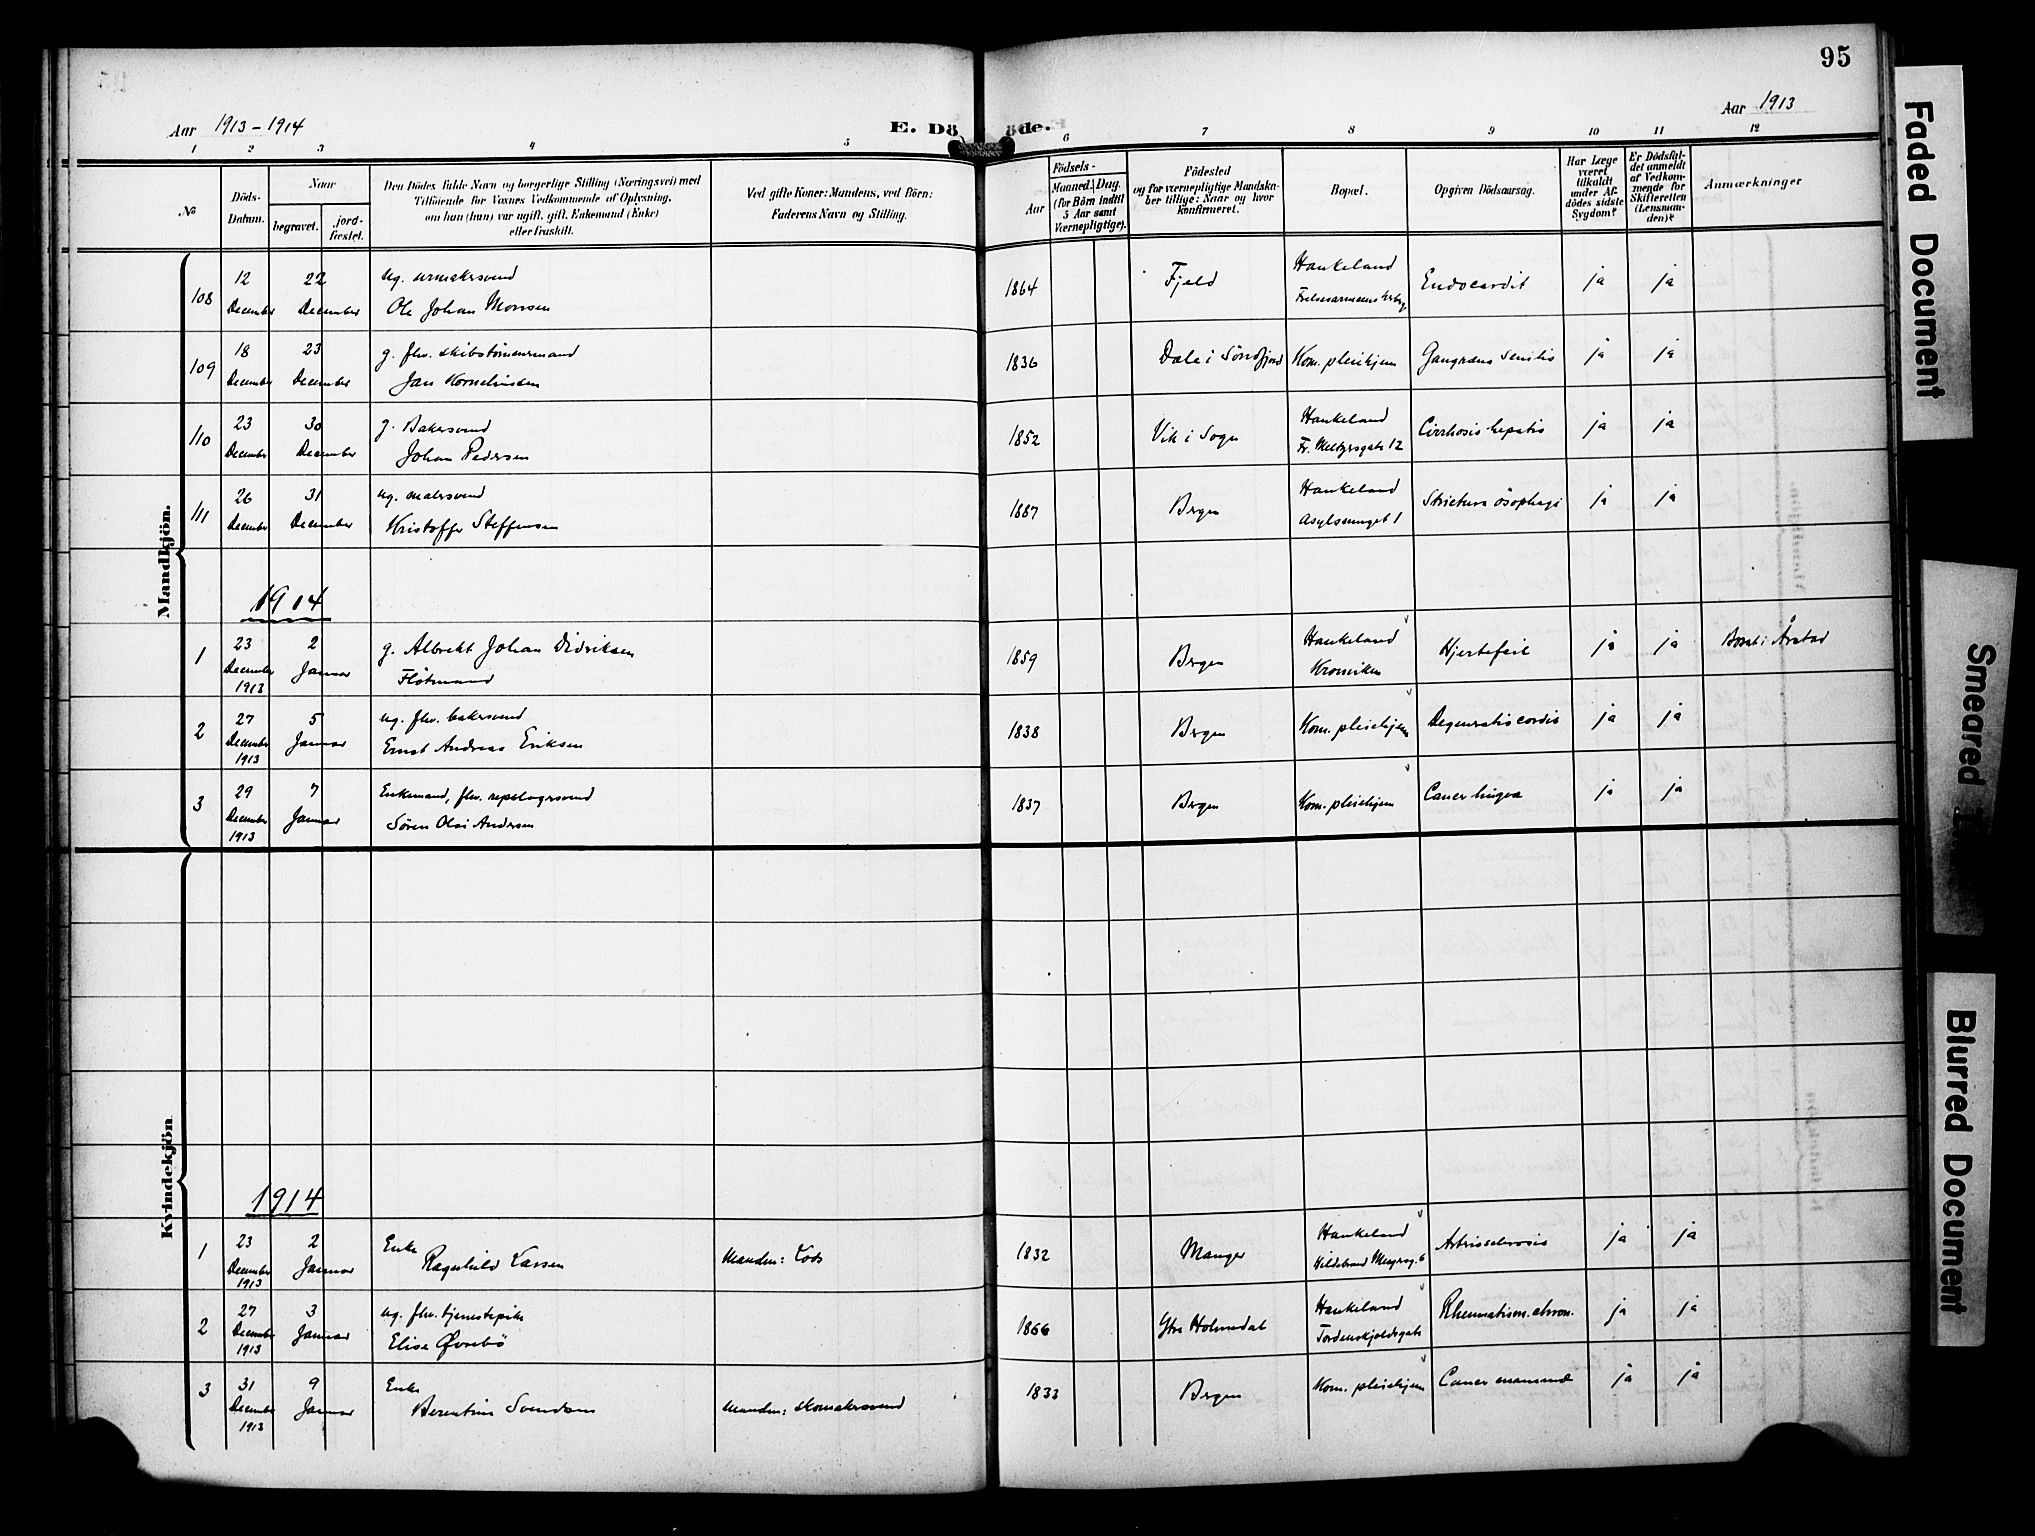 95
Aar 1913-1914
E. Döde.
Aar 1913
1 2 3 4 5 6 7 8 9 10 11 12
No
Döds-Datum.
Naar
begravet.
jord-fæstet.
Den Dödes fulde Navn og borgerlige Stilling (Næringsvei) med
Tilföiende for Voxnes Vedkommende af Oplysning,
om han (hun) var ugift, gift, Enkemand (Enke)
eller fraskilt.
Ved gifte Koner: Mandens, ved Börn:
Faderens Navn og Stilling.
Födsels-
Aar
Maaned. Dag.
(for Börn indtil
5 Aar samt
Værnepligtige).
Födested
og for værnepligtige Mandska-
ber tillige: Naar og hvor
konfirmeret.
Bopæl.
Opgiven Dödsaarsag.
Har Læge
været
tilkaldt
under Af-
dödes sidste
Sygdom?
Er Dödsfal-
det anmeldt
af Vedkom-
mende for
Skifteretten
(Lensman-
den)?
Anmærkninger
Mandkjön.
108 12 December 22 December ug. urmakersvend
Ole Johan Monsen
1864 Fjeld Haukeland
Endocardit ja ja
109 18 December 23 December g. fhv. skibstømmermand
Jan Korneliussen
1836 Dale i Söndfjord Kom. pleiehjem Gangræna senilis ja ja
110 23 December 30 December g. Bakersvend
Johan Pedersen
1852 Vik i Sogn Haukeland
Fr. Meltzersgate 12 Cirrhosis hepatis ja ja
111 26 December 31 December ug. malersvend
Kristoffer Steffensen
1887 Bergen Haukeland
Asylsmuget 1 Strictura ösophagi ja ja
1914
1 23 December 1913 2 Januar g. Albrekt Johan Didriksen
Fløtmand
1859 Bergen Haukeland
Kroneviken Hjertefeil ja ja Bosat i Årstad
2 27 December 1913 5 Januar ug. fhv. bakersvend
Ernst Andreas Eriksen
1838 Bergen Kom. pleiehjem Degeneratio cordis ja ja
3 29 December 1913 7 Januar Enkemand, fhv. repslagersvend
Sören Olai Andersen
1837 Bergen Kom. pleiehjem Cancer lingua ja ja
Kvindekjön
1914
1 23 December 1913 2 Januar Enke
Ragnhild Larsen
Manden: Lods
1832 Manger Haukeland
Hildebrand Meyersg. 6 Artriosclerosis ja ja
2 27 December 1913 3 Januar ug. fhv. tjenestepike
Elise Øvrebö
1866 Ytre Holmedal Haukeland
Tordenskjoldsgate Rheumatism. chron. ja ja
3 31 December 1913 9 Januar Enke
Berentine Svendsen
Manden: skomakersvend
1833 Bergen Kom. pleiehjem Cancer mammæ ja ja
Faded Document
Smeared
Blurred Document